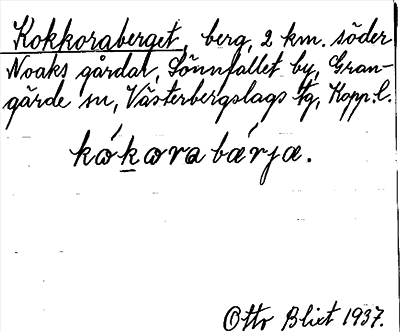 Kokkoraberget, berg, 2 km. söder
Noaks gårdar, Sönnfallet by, Gran-
gärde sn, Västerbergslags tg, Kopp. l.
kókora bærja.
Otto Blixt 1937.